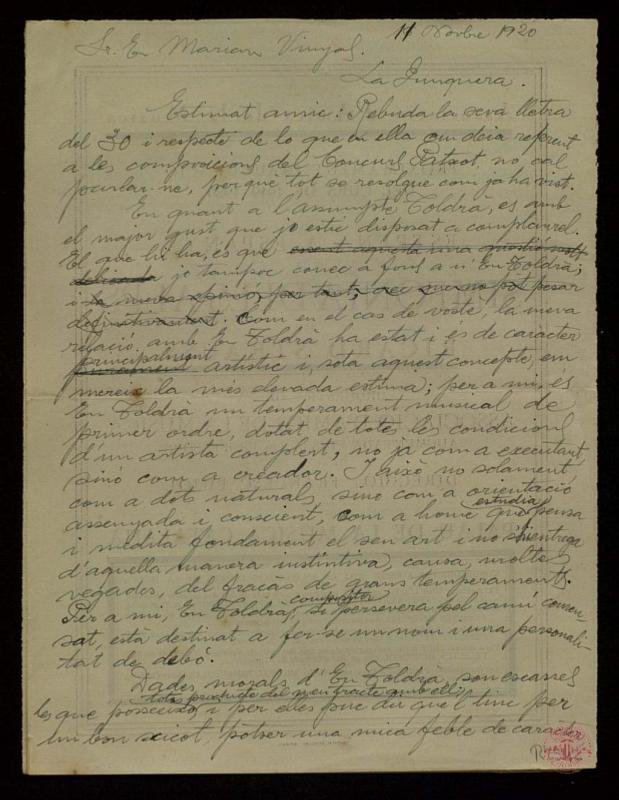 11 Novbre 1920
Sr. En Marian Vinyas.
La Junquera.
Estimat amic: Rebuda la seva lletra
del 30 i respecte de lo que en ella em deia referent
a les composicions del Concurs Patxot, no cal
parlar-ne, perquè tot se resolgué com ja ha vist.
En quant a l'assumpte Toldrà, es amb
el major gust que jo estic disposat a complaurel.
El que hi ha, es que essent aquesta una questió molt
delicada jo tampoc conec a fons a n'En Toldrà;
i la meva opinió, per tant, no pot pesar
definitivament. Com en el cas de vostè, la meva
relació amb En Toldrà ha estat i es de caracter
principalment
purament artistic i, sota aquest concepte, em
mereix la més elevada estima; per a mi, és
En Toldrà un temperament musical de
primer ordre, dotat de totes les condicions
d'un artista complert, no ja com a executant
sinó com a creador. I això no solament
com a dot natural, sino com a orientació
estudia,
assenyada i conscient, com a home que pensa
i medita fondament el seu art i no s'hi entrega
d'aquella manera instintiva, causa, moltes
vegades, del fracàs de grans temperaments.
compositor
Per a mi, En Toldrà, si persevera pel camí comen-
sat, està destinat a fer-se un nom i una personali-
tat de debó.
Dades morals d'En Toldrà, son escasses
tots producte del meu tracte amb ell;
les que posseeixo, i per elles puc dir que'l tinc per
un bon xicot, pótser una mica feble de caracter